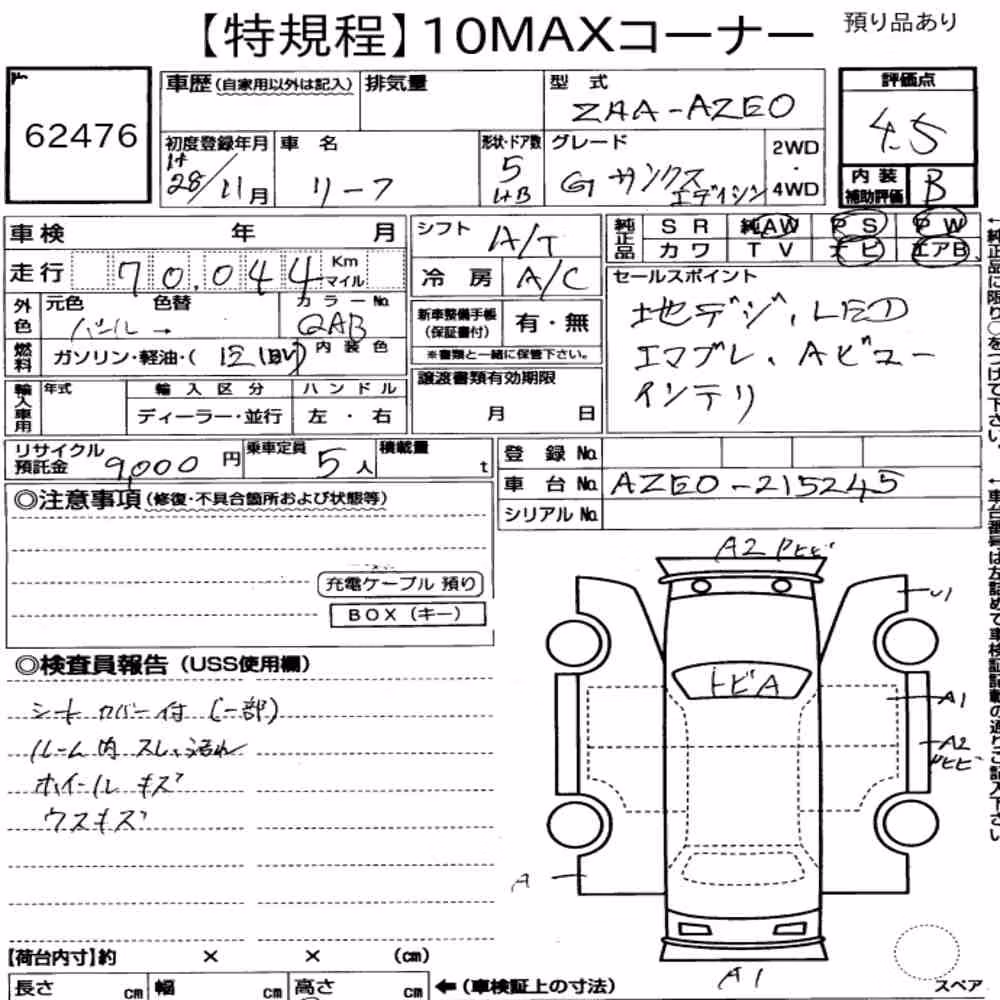 【特規程】10MAXコーナー 預り品あり
62476
車歴(自家用以外は記入) 排気量 型式 ZAA-AZE0
評価点 4.5
内装補助評価 B
初度登録年月 28/11月 車名 リーフ 形状・ドア数 5 HB グレード G サンクスエディシン 2WD・4WD
車検 年 月
シフト A/T
純正品 SR 純AW PS PW
カワ TV ナビ エアB
走行 70,044 Km マイル
冷房 A/C
セールスポイント
地デジ、LED
エマブレ、Aビュー
インテリ
外色 元色 パール → 色替 カラーNo. QAB
新車整備手帳(保証書付) 有・無
※書類と一緒に保管下さい。
燃料 ガソリン・軽油・( 内装色
譲渡書類有効期限
月 日
輸入車用 年式 輸入区分 ハンドル
ディーラー・並行 左・右
リサイクル預託金 9,000円 乗車定員 5人 積載量 t
登録No.
車台No. AZE0-215245
シリアルNo.
◎注意事項(修復・不具合箇所および状態等)
充電ケーブル 預り
BOX(キー)
◎検査員報告(USS使用欄)
シートカバー付(一部)
ルーム内スレ、汚れ
ホイールキズ
ウスキズ
A2 Pヒビ
U1
トビA
A1
A2
ヒビ
A
A1
スペア
【荷台内寸】約 × × (cm)
長さ cm 幅 cm 高さ cm ←(車検証上の寸法)
←純正品に限り○をつけて下さい。
←車台番号は左詰めで車検証記載の通りご記入下さい